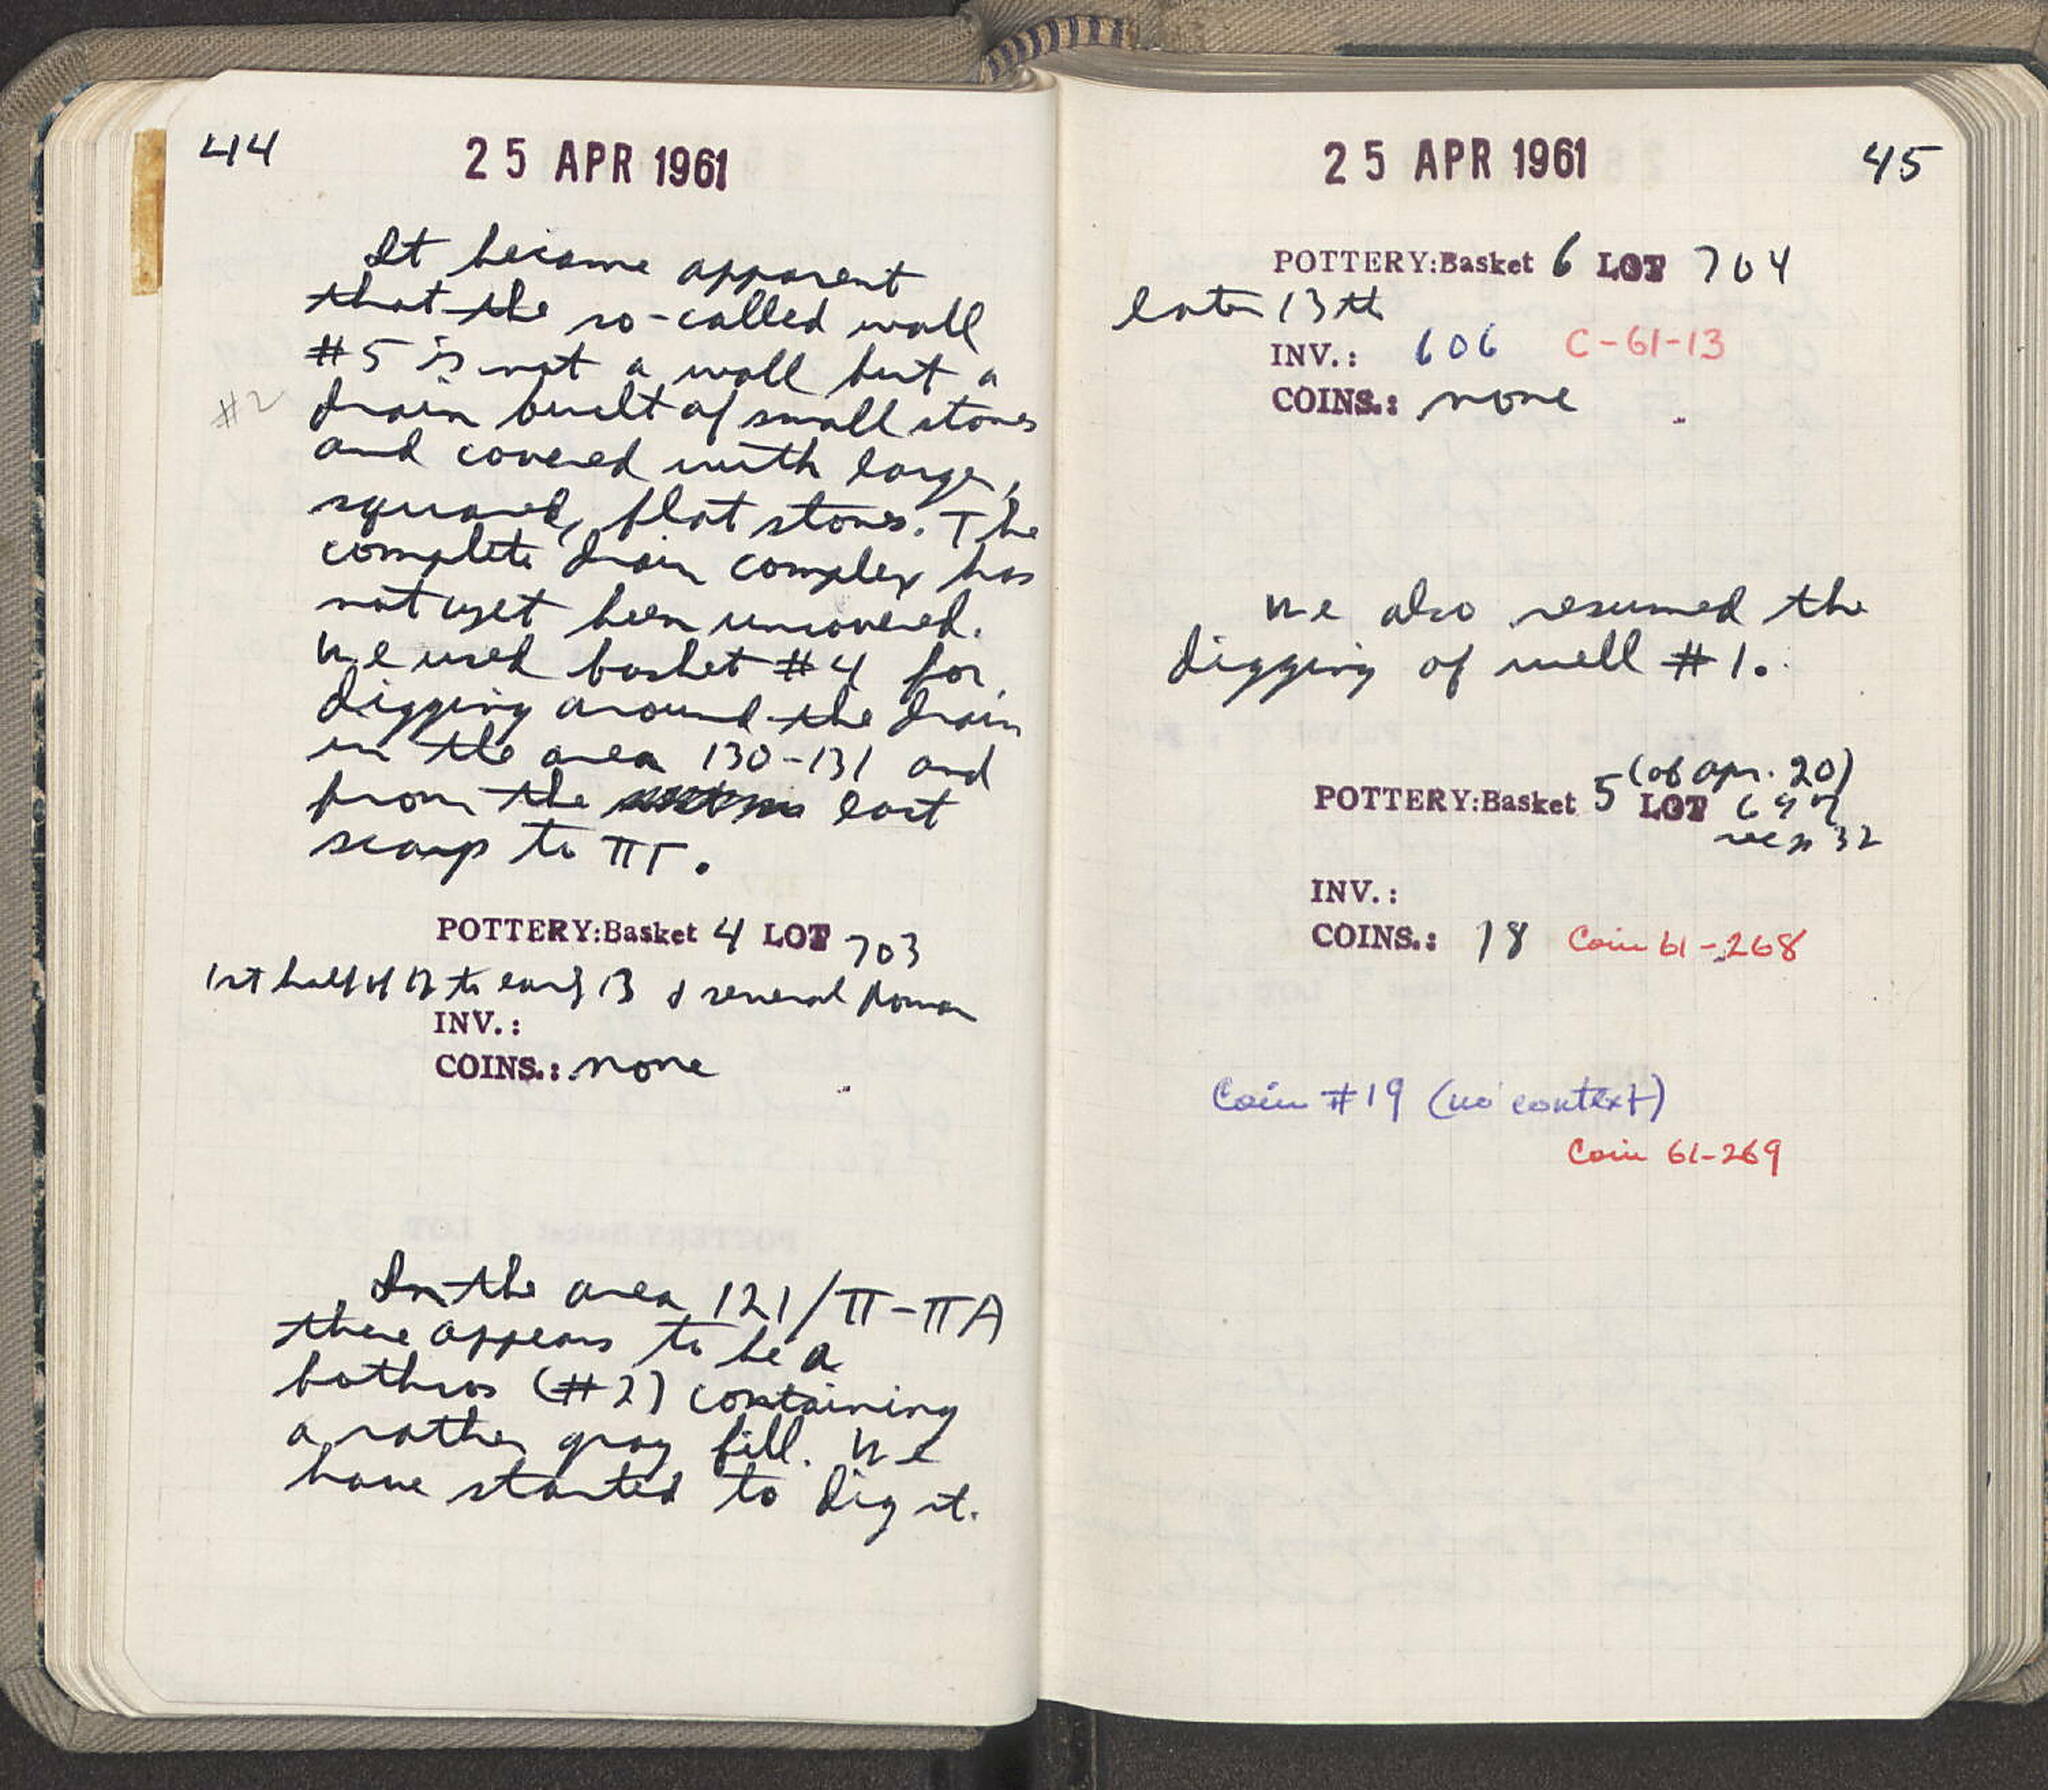 44
25 APR 1961
It became apparent
that the so-called wall
#5 is not a wall but a
#2
drain built of small stones
and covered with large,
squared, flat stones. The
complete drain complex has
not yet been uncovered.
We used basket #4 for
digging around the drain
in the area 130-131 and
from the east
scarp to ΠΓ.
POTTERY:Basket 4 LOT 703
1st half of 12 to early 13 & several Roman
INV.:
COINS.: none
In the area 121/Π-ΠA
there appears to be a
bothros (#2) containing
a rather gray fill. We
have started to dig it.
25 APR 1961
45
POTTERY:Basket 6 LOT 704
late 13th
INV.: 606 C-61-13
COINS.: none
We also resumed the
digging of well #1.
(of Apr. 20)
POTTERY:Basket 5 LOT
32
INV.:
COINS.: 18 Coin 61-268
Coin #19 (no context)
Coin 61-269